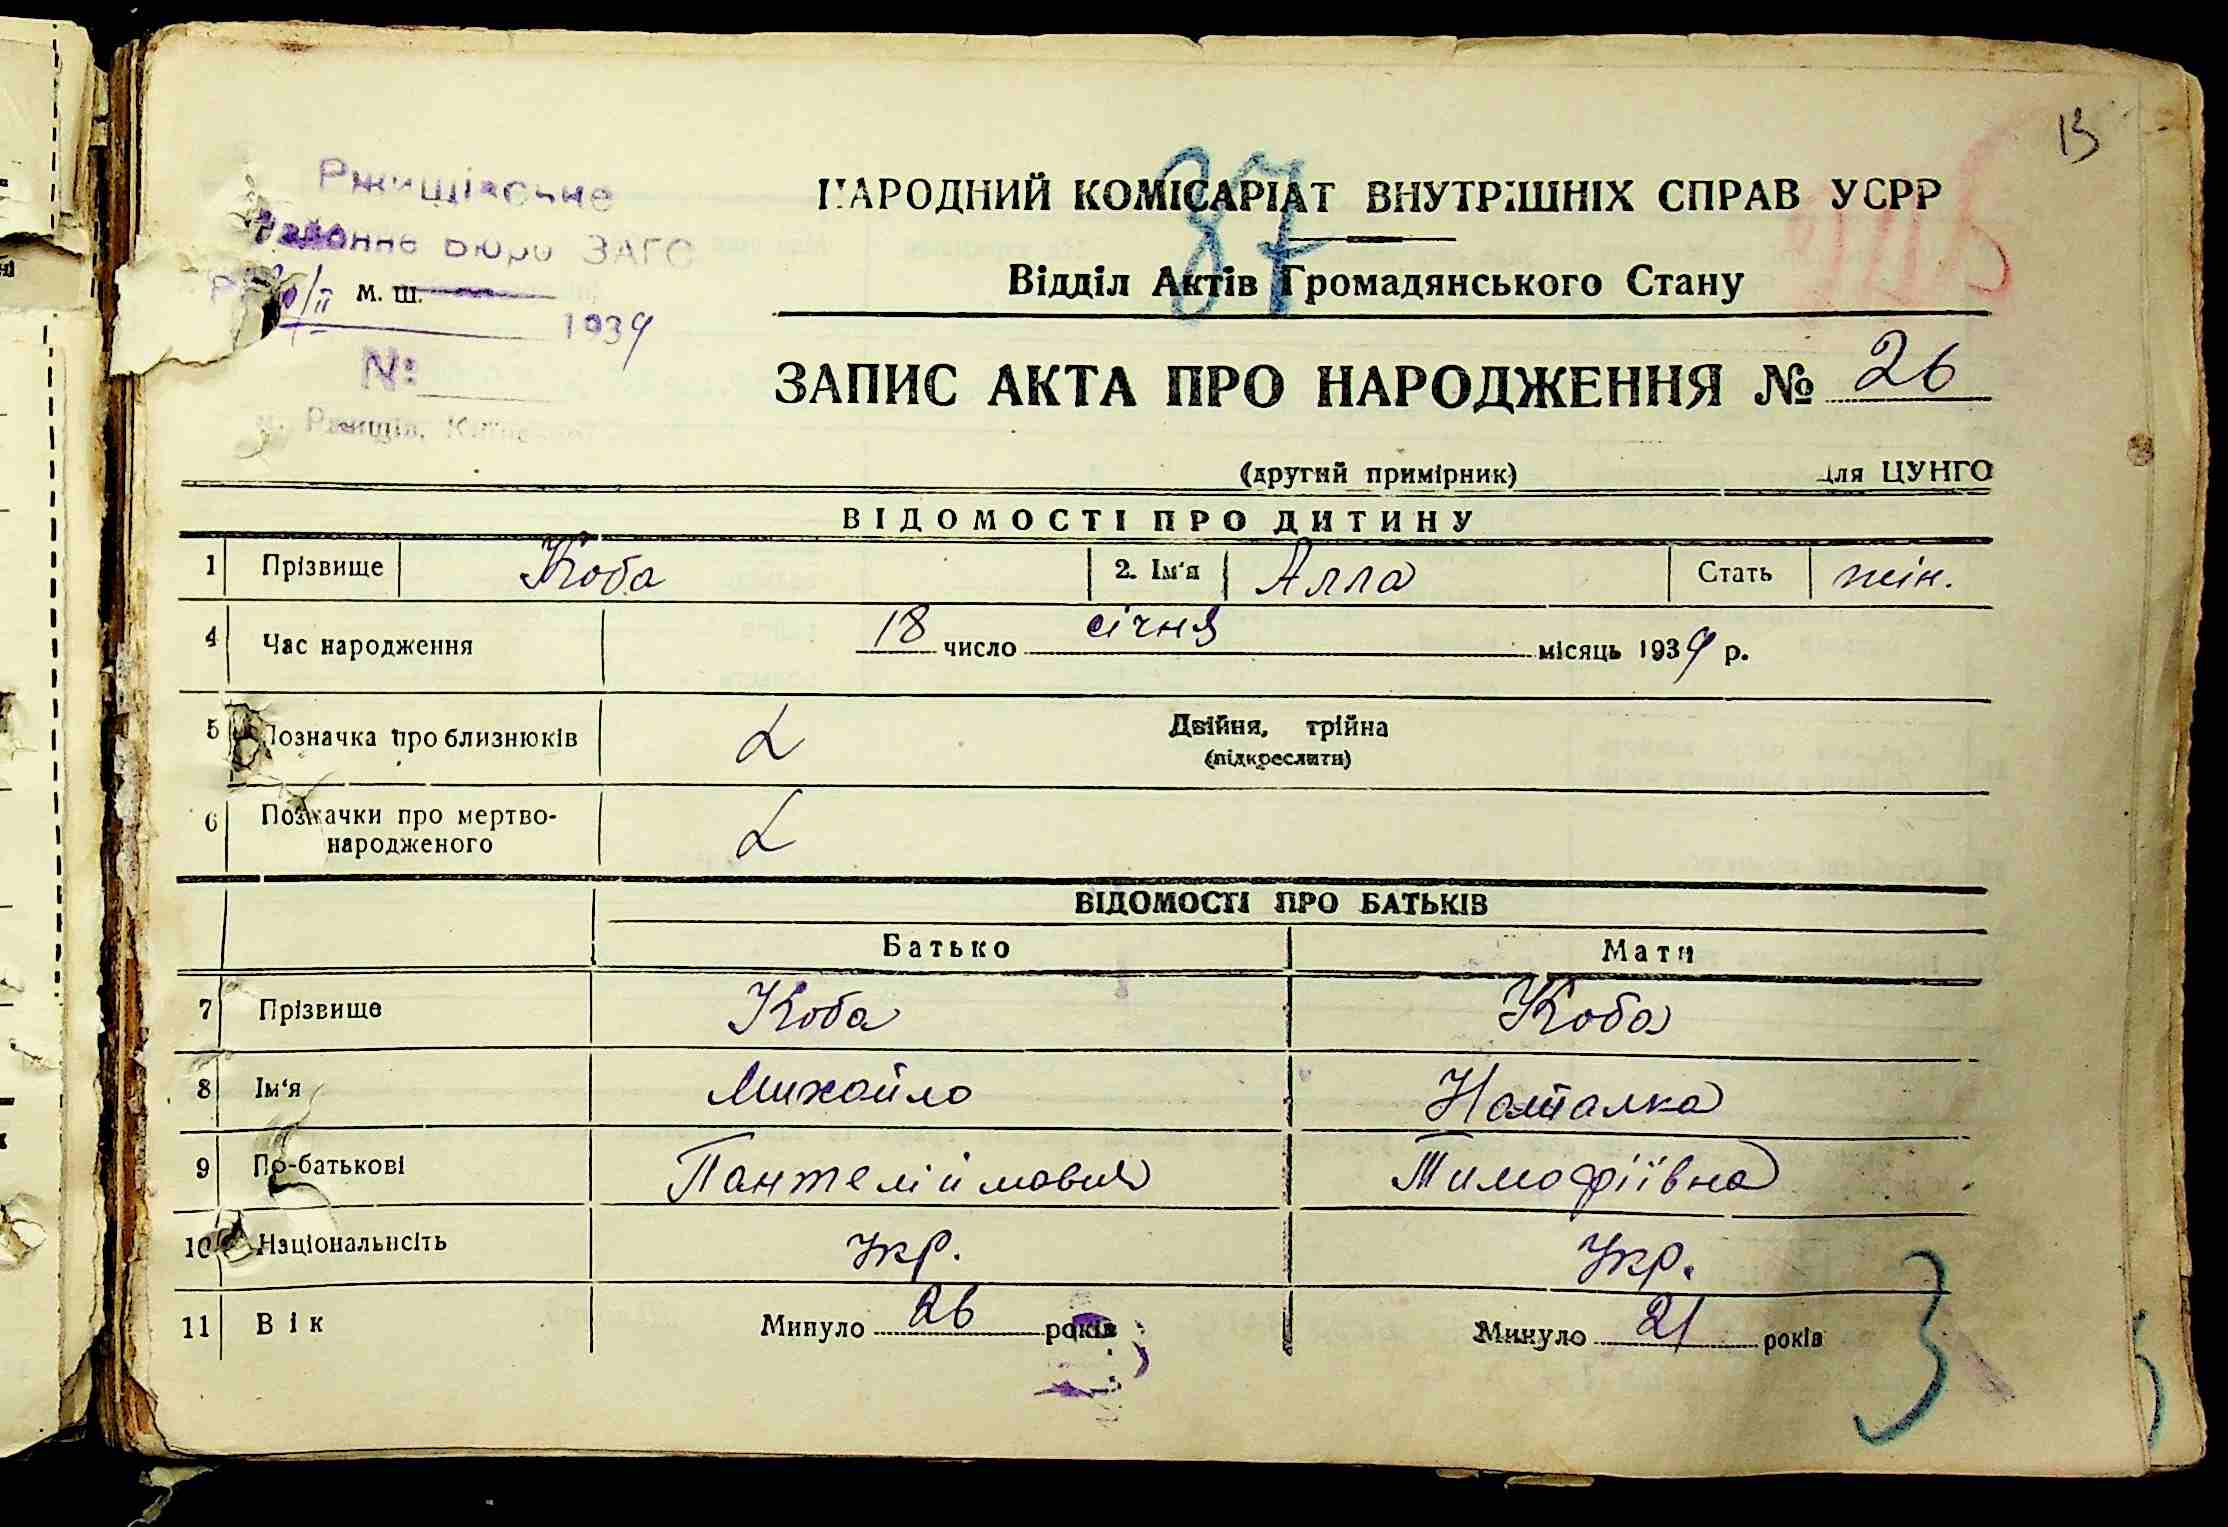 13
Ржищівське
районне Бюро ЗАГС
м. ш.
1939
№:
м. Ржищів, Київської
87
НАРОДНИЙ КОМІСАРІАТ ВНУТРІШНІХ СПРАВ УСРР
Відділ Актів Громадянського Стану
ЗАПИС АКТА ПРО НАРОДЖЕННЯ № 26
(другий примірник) для ЦУНГО
ВІДОМОСТІ ПРО ДИТИНУ
1 Прізвище Коба 2. Ім'я Алла Стать жін.
4 Час народження 18 число січня місяць 1939 р.
5 Позначка про близнюків Двійня, трійна
(підкреслити)
6 Позначки про мертво-
народженого
ВІДОМОСТІ ПРО БАТЬКІВ
Батько Мати
7 Прізвище Коба Коба
8 Ім'я Михайло Наталка
9 По-батькові Пантеліймович Тимофіївна
10 Національнсіть Укр. Укр.
11 Вік Минуло 26 років Минуло 21 років
3